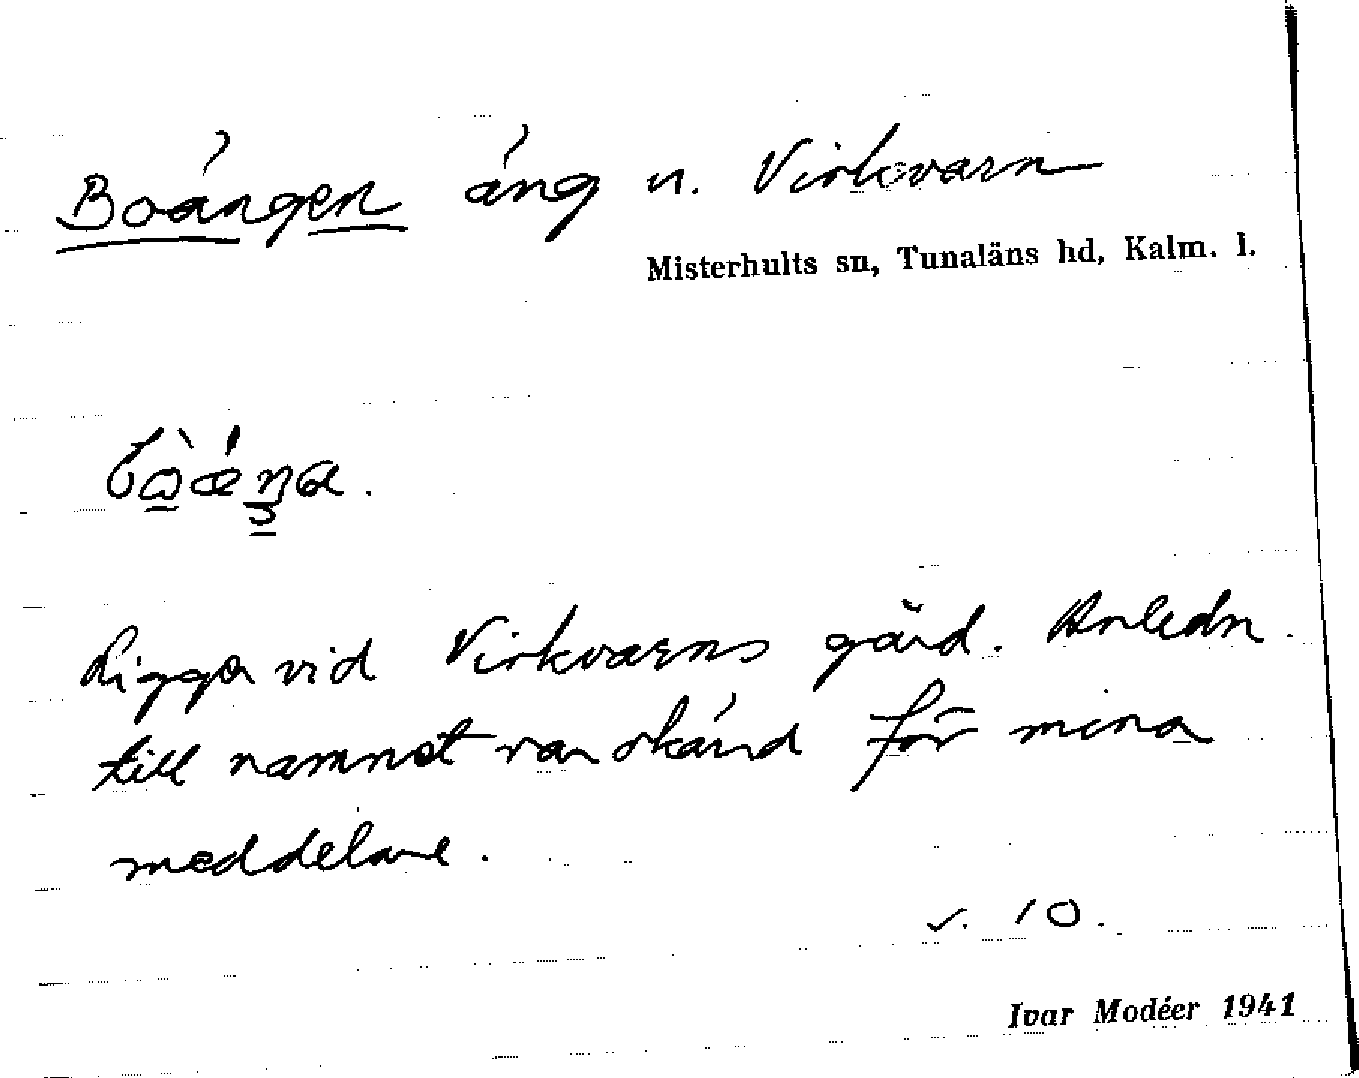 Boängen äng u. Virkvarn
Misterhults sn, Tunaläns hd, Kalm. l.
Ligger vid Virkvarns gärd. Anledn.
till namnet var okänd för mina
meddelare.
s. 10.
Ivar Modéer 1941